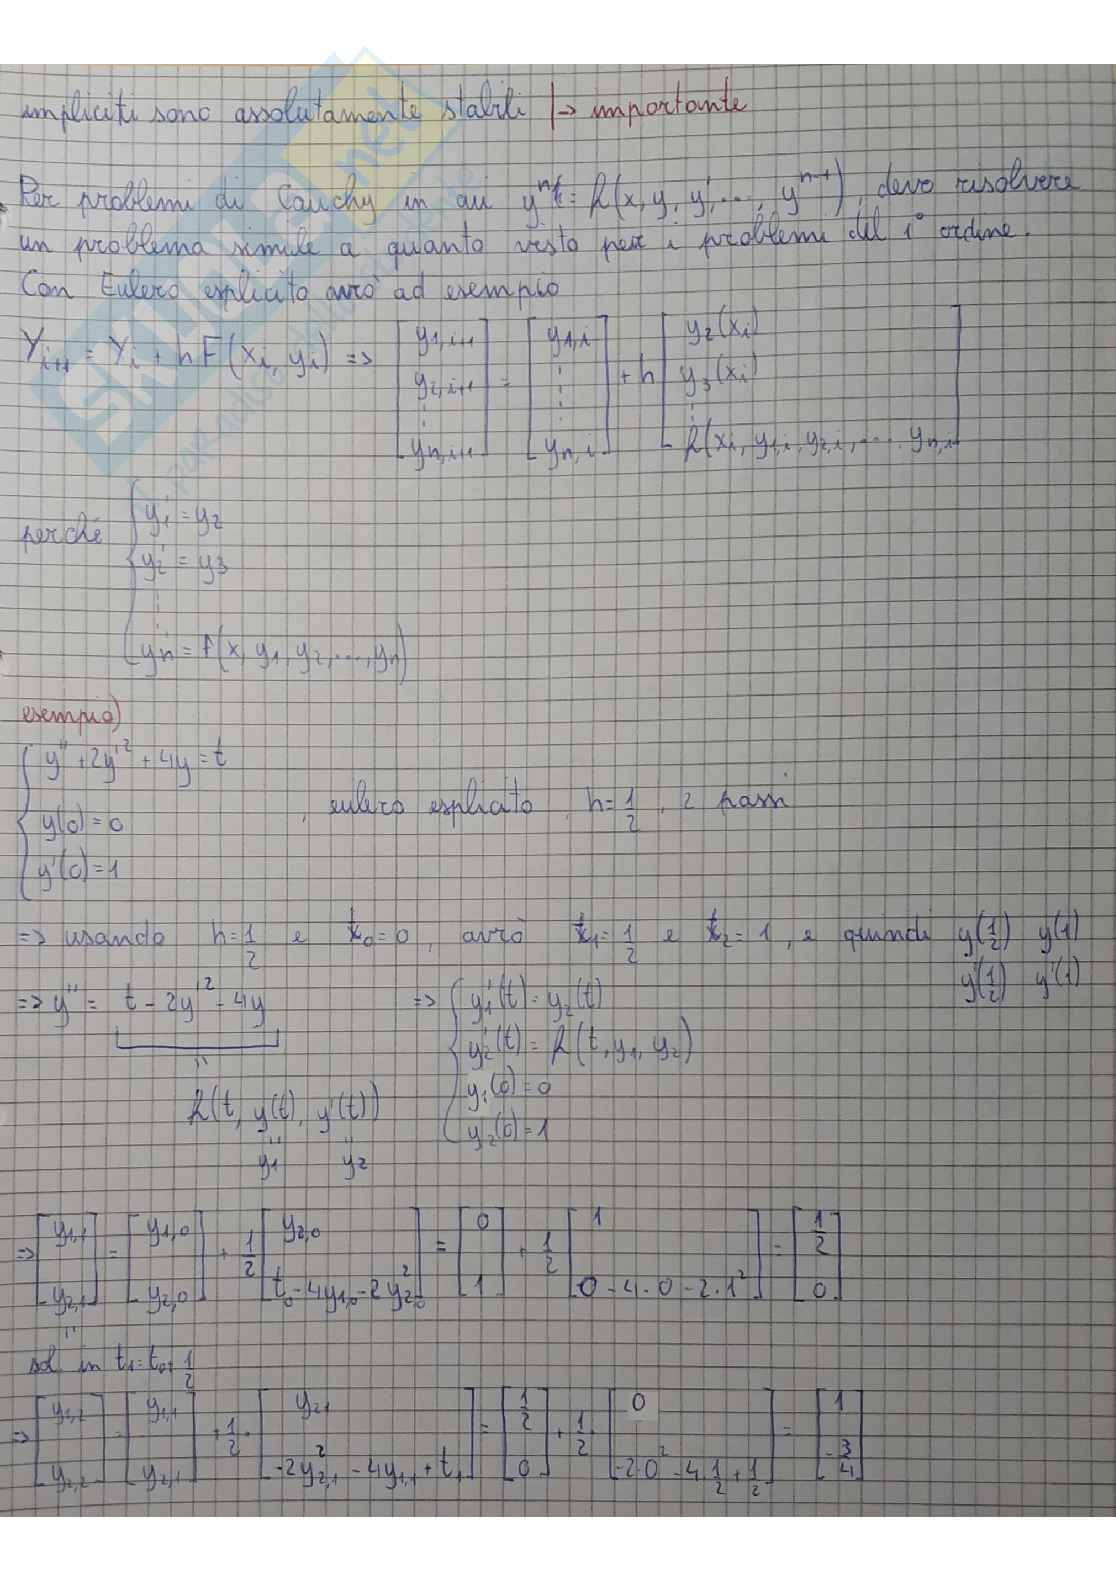 impliciti sono assolutamente stabili |-> importante
Per problemi di Cauchy in cui y^n = f(x, y, y', ..., y^{n-1}), devo risolvere
un problema simile a quanto visto per i problemi del 1° ordine.
Con Eulero esplicito avrò ad esempio
Y_{i+1} = Y_i + h F(x_i, y_i) => [y_{1,i+1} y_{2,i+1} ⋮ y_{n,i+1}] = [y_{1,i} ⋮ y_{n,i}] + h [y_2(x_i) y_3(x_i) ⋮ f(x_i, y_{1,i}, y_{2,i}, ..., y_{n,i})]
perché { y_1' = y_2
y_2' = y_3
⋮
y_n' = f(x, y_1, y_2, ..., y_n)
esempio)
{ y'' + 2y'^2 + 4y = t
y(0) = 0 , eulero esplicito, h = 1/2, 2 passi
y'(0) = 1
=> usando h = 1/2 e t_0 = 0, avrò t_1 = 1/2 e t_2 = 1, e quindi y(1/2) y(1)
y'(1/2) y'(1)
=> y'' = t - 2y'^2 - 4y => { y_1'(t) = y_2(t)
y_2'(t) = f(t, y_1, y_2)
f(t, y(t), y'(t)) y_1(0) = 0
y_1 y_2 y_2(0) = 1
=> [y_{1,1} y_{2,1}] = [y_{1,0} y_{2,0}] + 1/2 [y_{2,0} t_0 - 4y_{1,0} - 2y_{2,0}^2] = [0 1] + 1/2 [1 0 - 4·0 - 2·1^2] = [1/2 0]
sol in t_1 = t_0 + 1/2
=> [y_{1,2} y_{2,2}] = [y_{1,1} y_{2,1}] + 1/2 · [y_{2,1} -2y_{2,1}^2 - 4y_{1,1} + t_1] = [1/2 0] + 1/2 · [0 -2·0^2 - 4·1/2 + 1/2] = [1 -3/4]